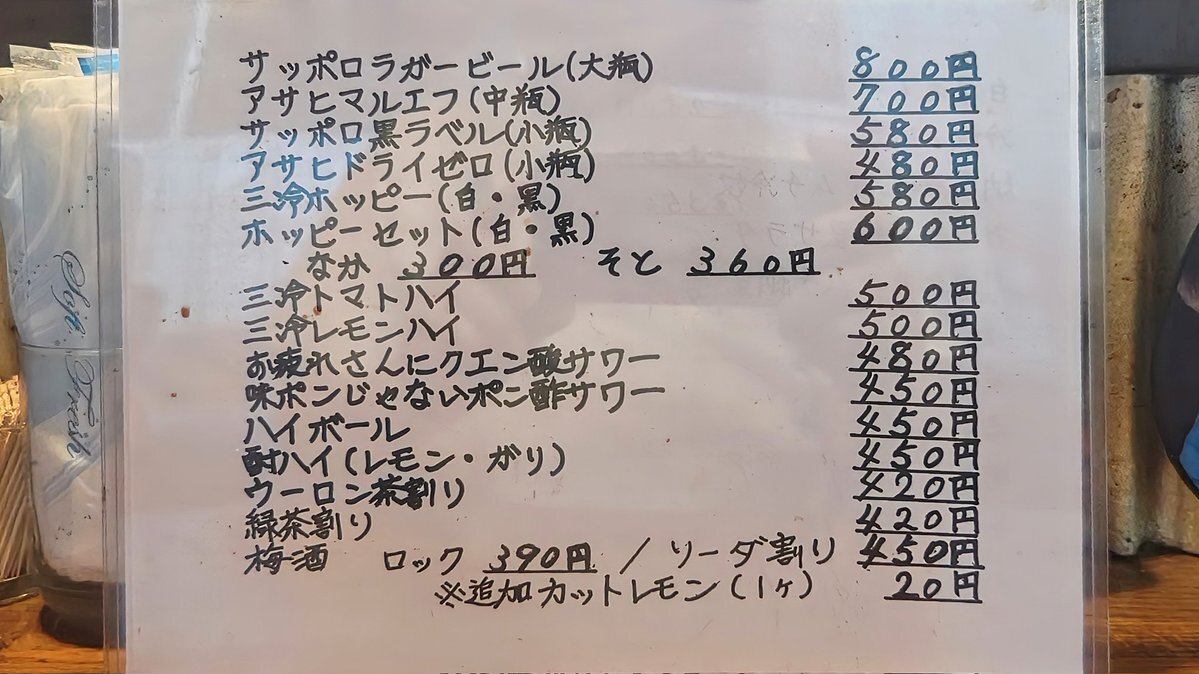 サッポロラガービール(大瓶) 800円
アサヒマルエフ(中瓶) 700円
サッポロ黒ラベル(小瓶) 580円
アサヒドライゼロ(小瓶) 480円
三冷ホッピー(白・黒) 580円
ホッピーセット(白・黒) 600円
なか 300円 そと 360円
三冷トマトハイ 500円
三冷レモンハイ 500円
お疲れさんにクエン酸サワー 480円
味ポンじゃないポン酢サワー 450円
ハイボール 450円
酎ハイ(レモン・ガリ) 450円
ウーロン茶割り 420円
緑茶割り 420円
梅酒 ロック 390円 / ソーダ割り 450円
※追加カットレモン(1ヶ) 20円
Soft Fresh